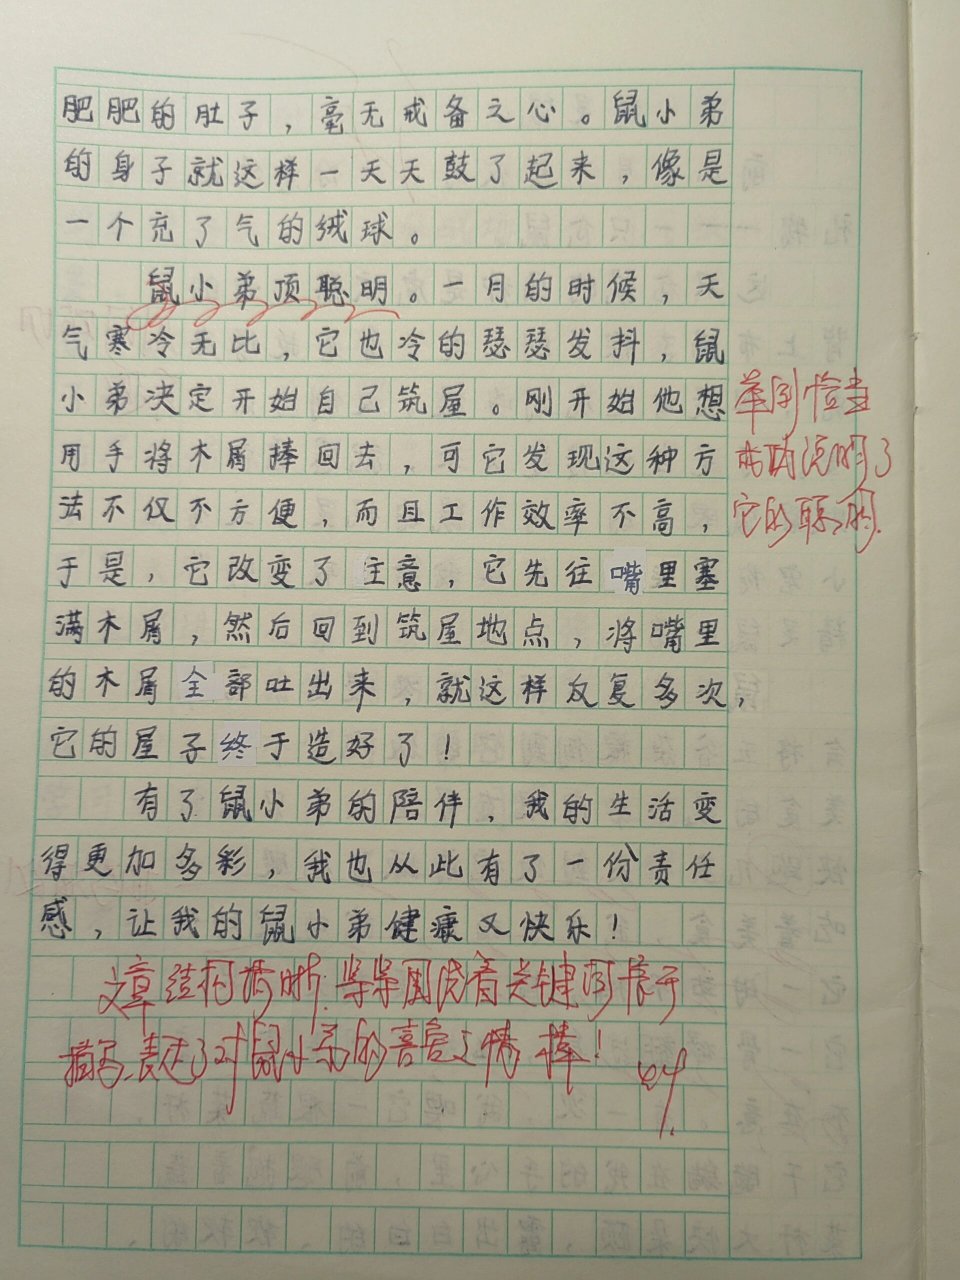 肥肥的肚子，毫无戒备之心。鼠小弟
的身子就这样一天天鼓了起来，像是
一个充了气的绒球。
鼠小弟顶聪明。一月的时候，天
气寒冷无比，它也冷的瑟瑟发抖，鼠
小弟决定开始自己筑屋。刚开始他想
用手将木屑捧回去，可它发现这种方
法不仅不方便，而且工作效率不高，
于是，它改变了主意，它先往嘴里塞
满木屑，然后回到筑屋地点，将嘴里
的木屑全部吐出来，就这样反复多次，
它的屋子终于造好了！
有了鼠小弟的陪伴，我的生活变
得更加多彩，我也从此有了一份责任
感，让我的鼠小弟健康又快乐！
举例恰当
说明了
它的聪明.
文章结构清晰.紧紧围绕着关键词
描写.表达了对鼠小弟的喜爱之情.棒！